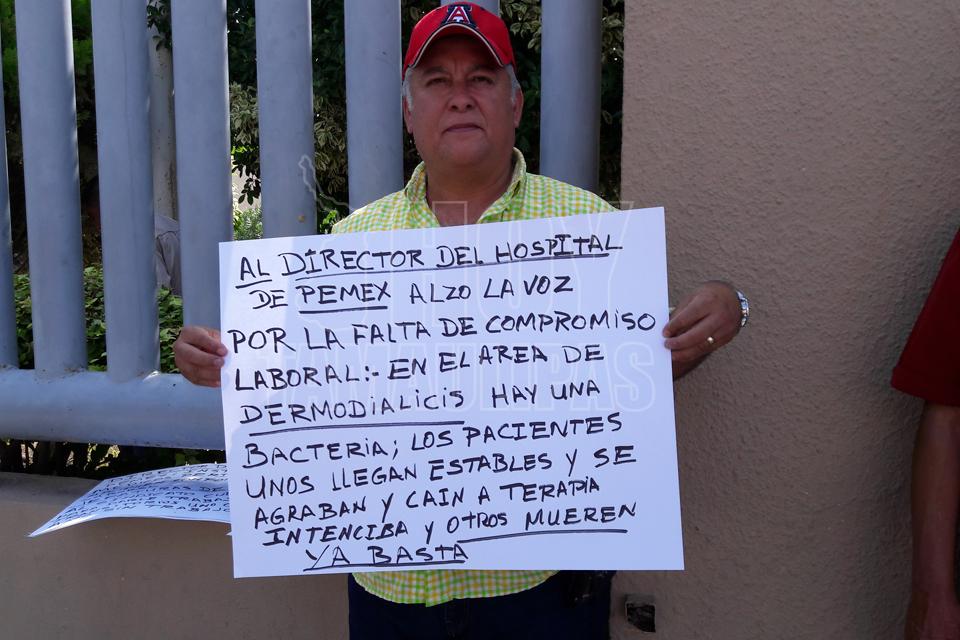 A
AL DIRECTOR DEL HOSPITAL
DE PEMEX ALZO LA VOZ
POR LA FALTA DE COMPROMISO
LABORAL:- EN EL AREA DE
DERMODIALICIS HAY UNA
BACTERIA; LOS PACIENTES
UNOS LLEGAN ESTABLES Y SE
AGRABAN Y CAIN A TERAPIA
INTENCIBA Y OTROS MUEREN
YA BASTA
HOY
TAMAULIPAS